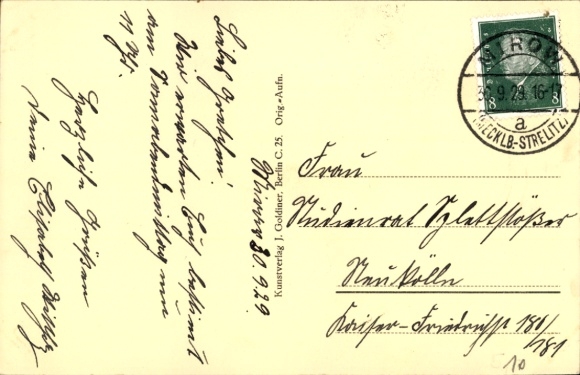 Mirow 30.9.29.
Liebes Gretchen!
Wir erwarten Euch bestimmt
am Sonnabendmittag um
11 Uhr.
Herzliche Grüßen
Deine Elisabeth
Kunstverlag J. Goldiner, Berlin C. 25. Orig.-Aufn.
MIROW
30.9.29.16-17
a
(MECKLB.-STRELITZ)
8 8
Frau
Studienrat Splettstößer
Neukölln
Kaiser-Friedrichst 180/
181
10